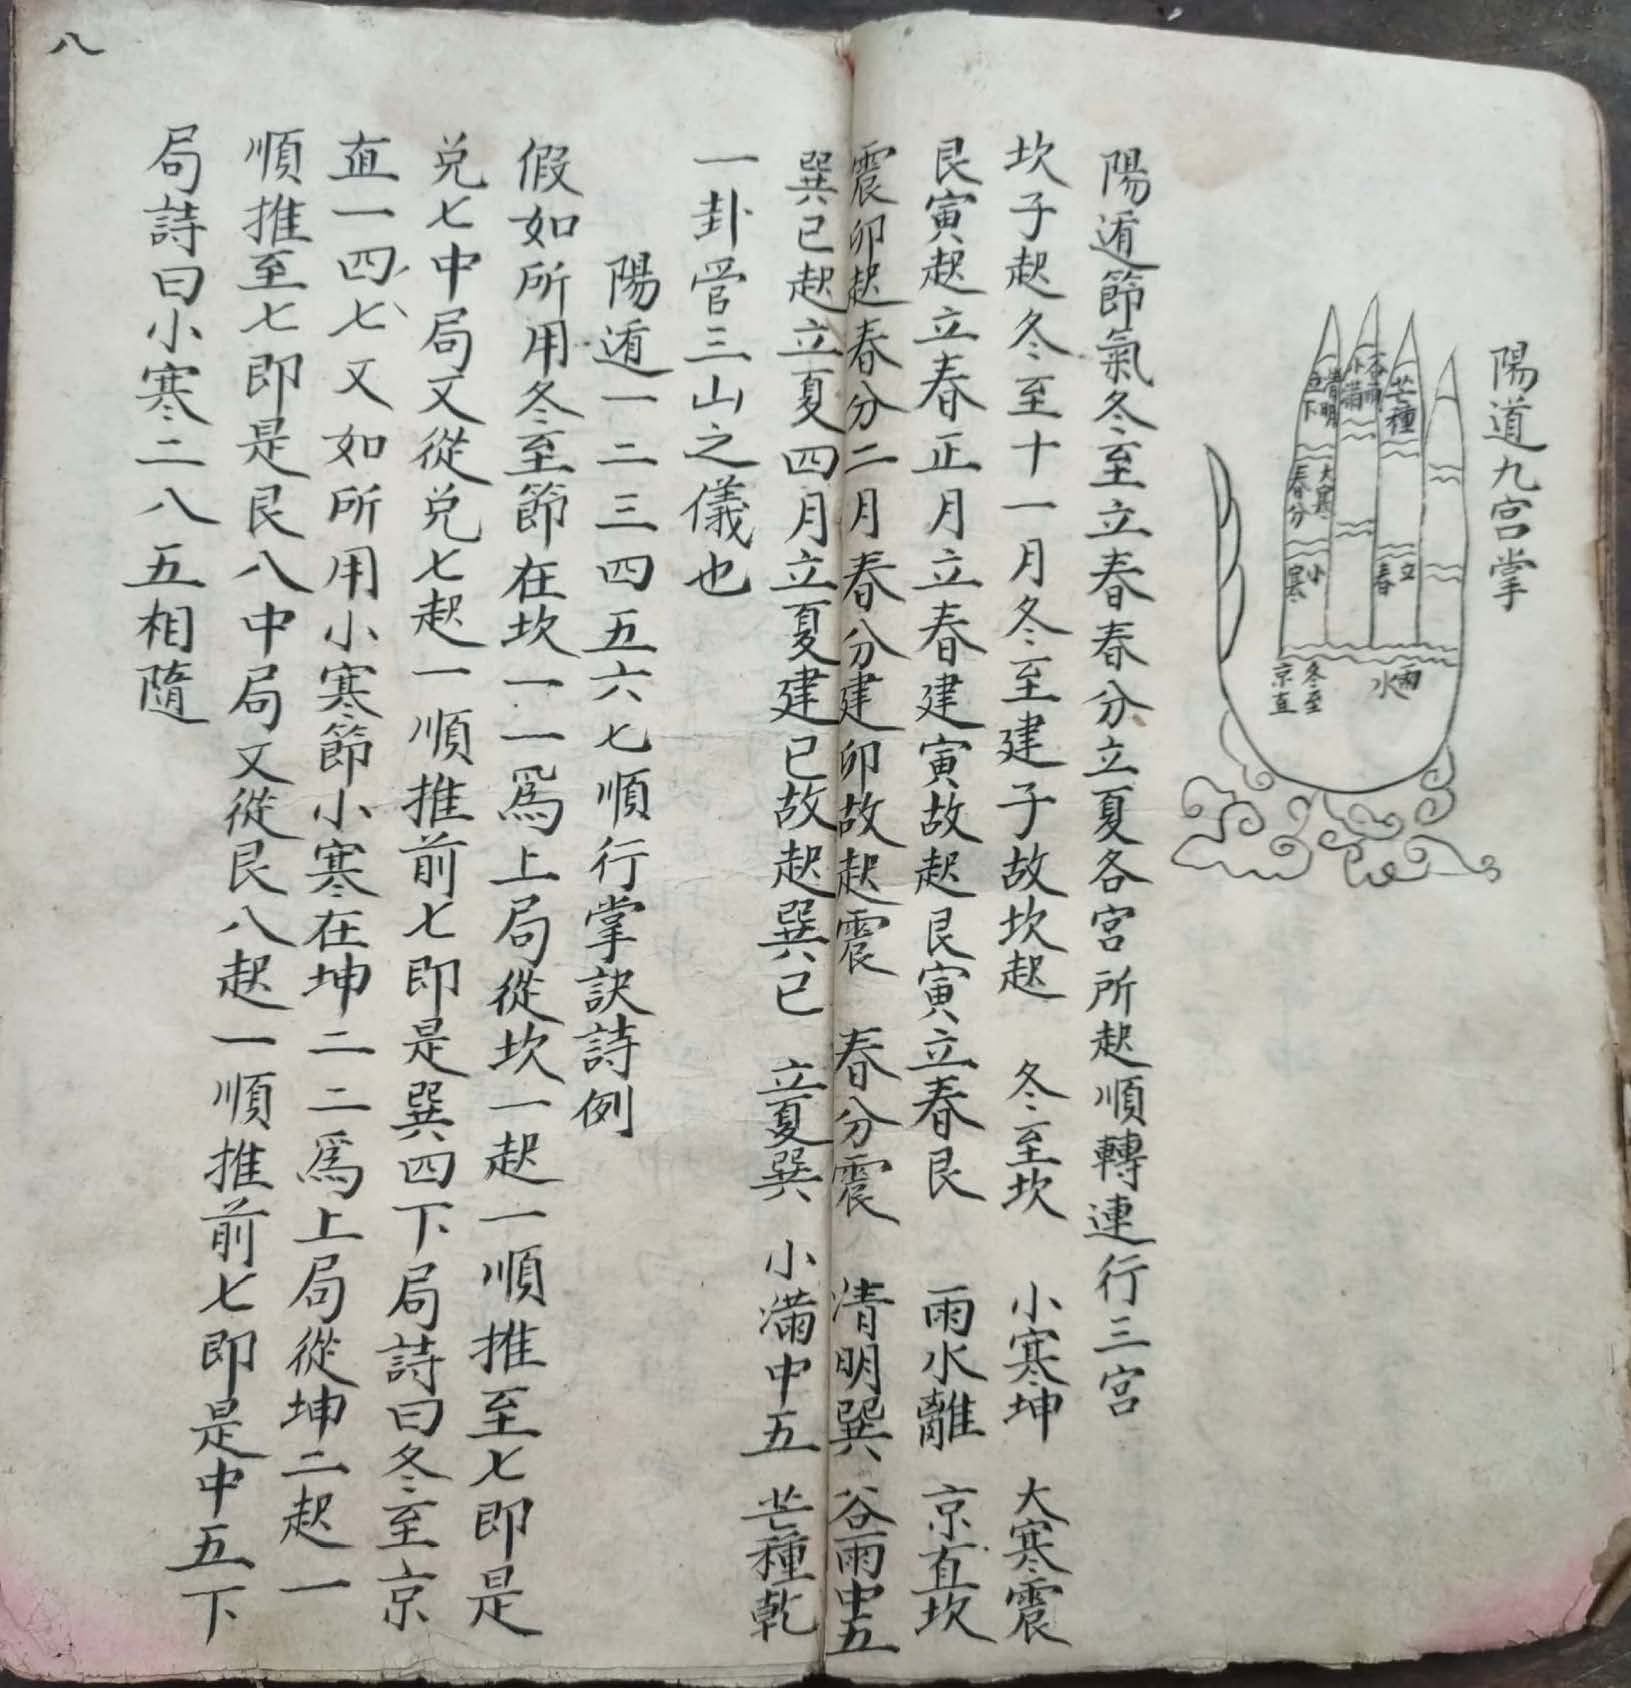 陽道九宮掌
芒種
清明
立下
谷雨
小滿
大寒
春分
小寒
立春
冬至
京直
雨水
陽遁節氣冬至立春春分立夏各宮所起順轉連行三宮
坎子起冬至十一月冬至建子故坎起 冬至坎 小寒坤 大寒震
艮寅起立春正月立春建寅故起艮寅立春艮 雨水離 京直坎
震卯起春分二月春分建卯故起震 春分震 清明巽 谷雨中五
巽已起立夏四月立夏建已故起巽已 立夏巽 小滿中五 芒種乾
一卦管三山之儀也
陽遁一二三四五六七順行掌訣詩例
假如所用冬至節在坎一一為上局從坎一起一順推至七即是
兌七中局又從兌七起一順推前七即是巽四下局詩曰冬至京
直一四七又如所用小寒節小寒在坤二二為上局從坤二起一
順推至七即是艮八中局又從艮八起一順推前七即是中五下
局詩曰小寒二八五相隨
八